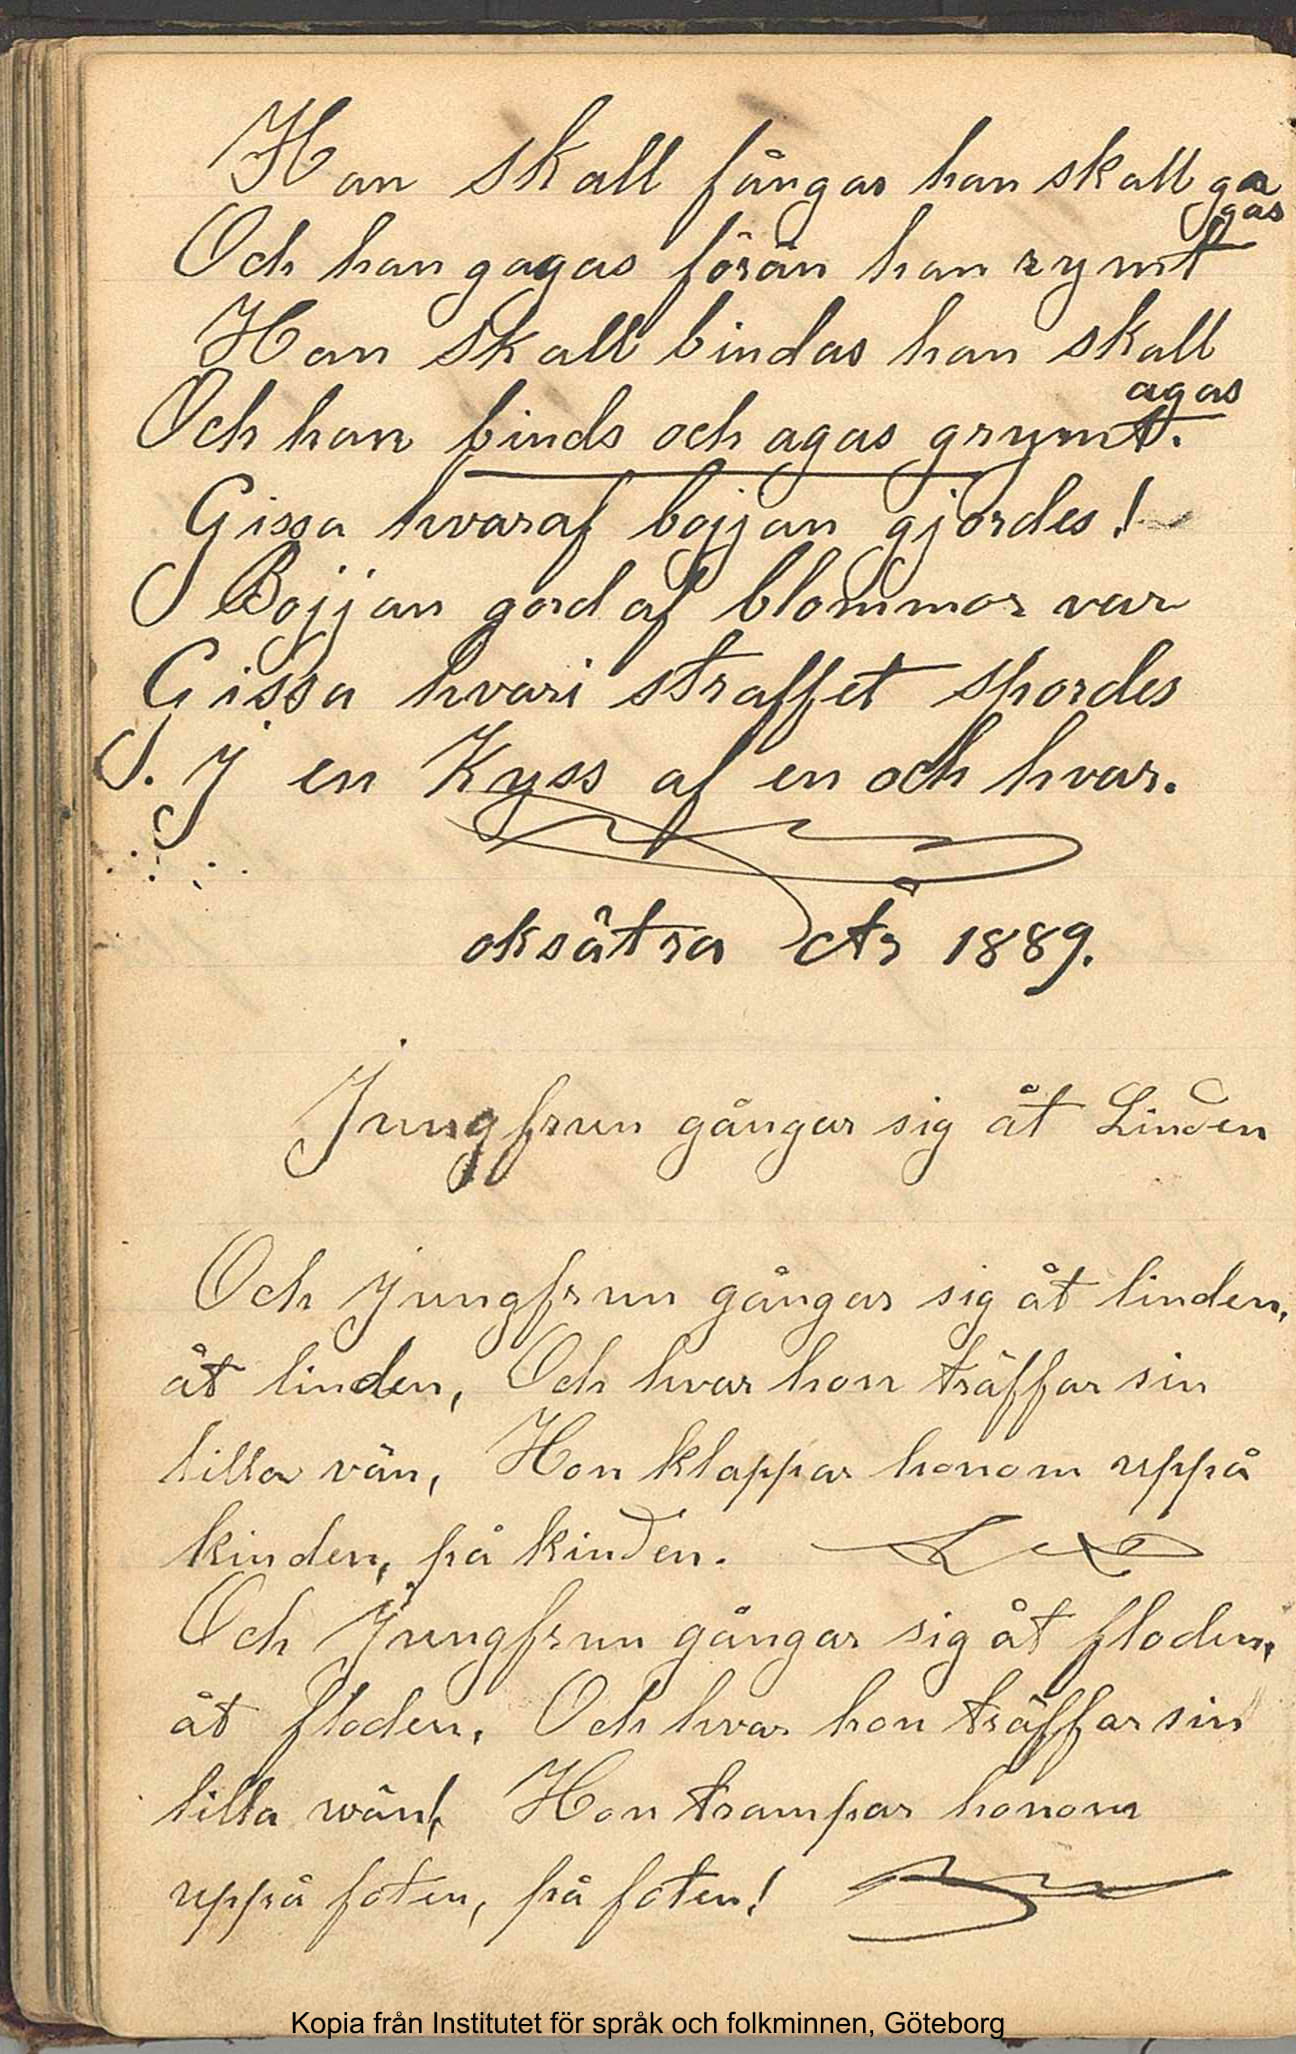 Han skall fångas han skall ga
gas
Och han gagas förän han rymt
Han skall bindas han skall
agas
Och han binds och agas grymt.
Gissa hvaraf bojjan gjordes!
Bojjan gord af blommor var
Gissa hvari straffet skordes
J en Kyss af en och hvar.
oksätra År 1889.
Jungfrun gångar sig åt Linden
Och Jungfrun gångar sig åt linden,
åt linden, Och hvar hon träffar sin
lilla vän, Hon klappar honom uppå
kinden, på kinden.
Och Jungfrun gångar sig åt floden,
åt floden, Och hvar hon träffar sin
lilla wän!, Hon trampar honom
uppå foten, på foten!
Kopia från Institutet för språk och folkminnen, Göteborg